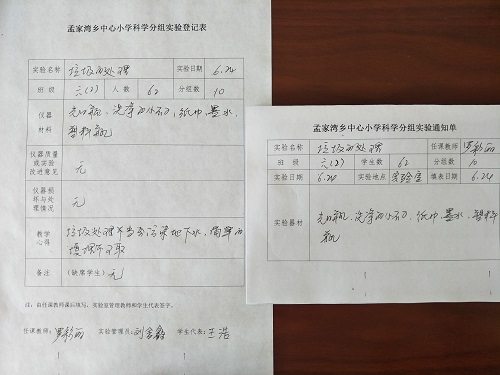 孟家湾乡中心小学科学分组实验登记表
实验名称 垃圾的处理 实验日期 6.24
班 级 六(2) 人 数 62 分组数 10
仪器材料 广口瓶,洗净的小石,纸巾,墨水,
塑料瓶
仪器质量或实验改进意见 无
仪器损坏与处理情况 无
教学心得 垃圾处理不当会污染地下水,简单的
填埋不可取
备注 (缺席学生) 无
注:由任课教师课后填写,实验室管理教师和学生代表签字。
任课教师: 实验管理员: 学生代表:王浩
孟家湾乡中心小学科学分组实验通知单
实验名称 垃圾的处理 任课教师
班 级 六(2) 学生数 62 分组数 10
实验日期 6.24 实验地点 实验室 填表日期 6.24
实验器材 广口瓶,洗净的小石,纸巾,墨水,塑料
瓶